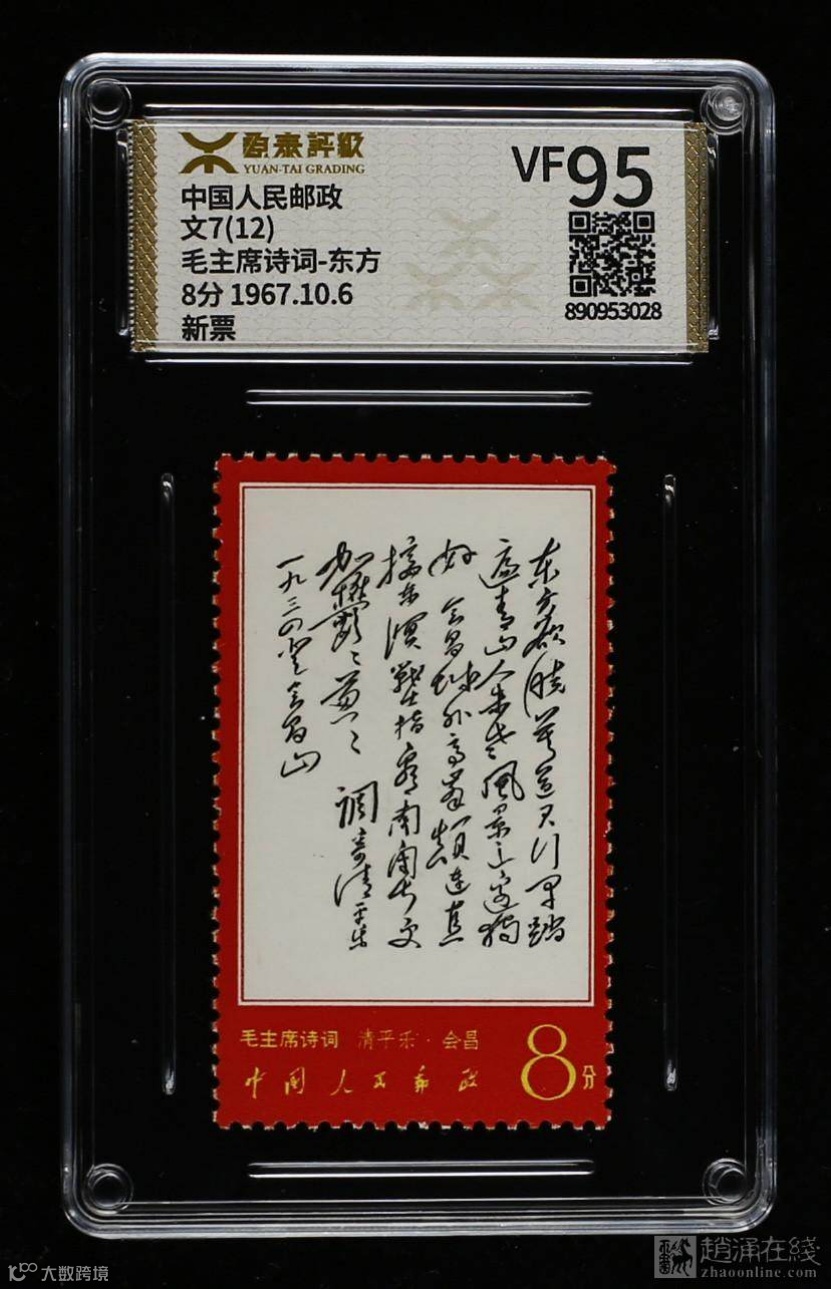 源泰評級
YUAN-TAI GRADING
VF95
中国人民邮政
文7(12)
毛主席诗词-东方
8分 1967.10.6
新票
890953028
东方欲晓莫道君行早踏
遍青山人未老风景这边独
好会昌城外高峰颠连直
接东溟战士指看南粤更
加鬱〻葱〻 调寄清平乐
一九三四登会昌山
毛主席诗词 清平乐·会昌
中国人民邮政
8分
大数跨境
趙涌在綫
zhaoonline.com